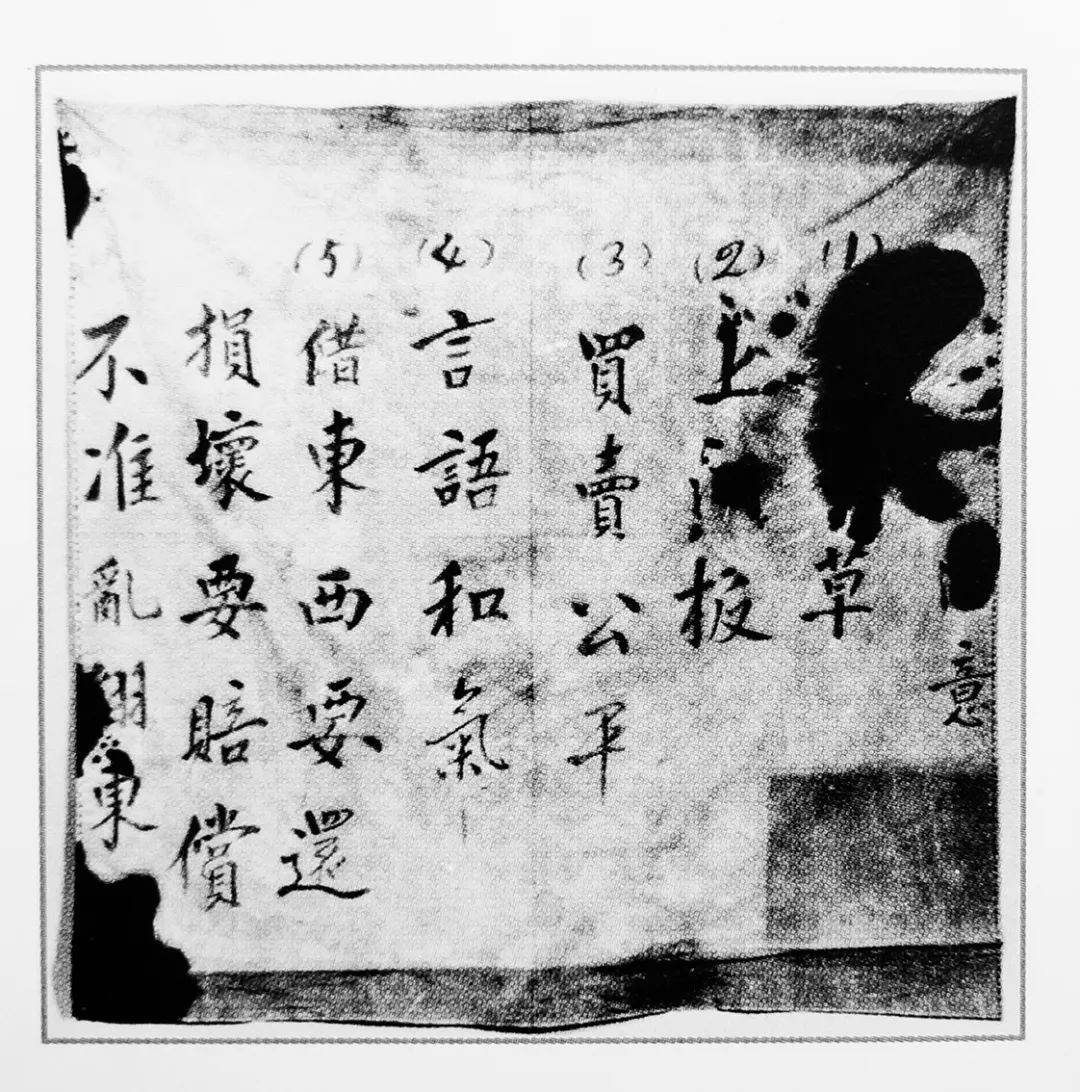 意
(1) 草
(2) 上 板
(3) 買賣公平
(4) 言語和氣
(5) 借東西要還
損壞要賠償
不准亂翻東